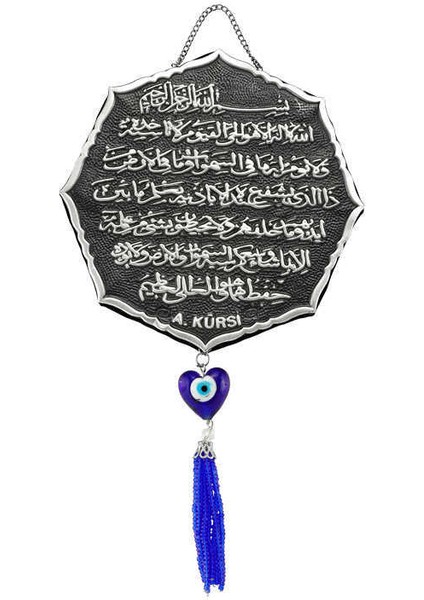 بسم الله الرحمن الرحيم
الله لا اله الا هو الحي القيوم لا تاخذه سنة
ولا نوم له ما في السموات وما في الارض من
ذا الذي يشفع عنده الا باذنه يعلم ما بين
ايديهم وما خلفهم ولا يحيطون بشيء من علمه
الا بما شاء وسع كرسيه السموات والارض ولا يؤده
حفظهما وهو العلي العظيم
A. KÜRSİ